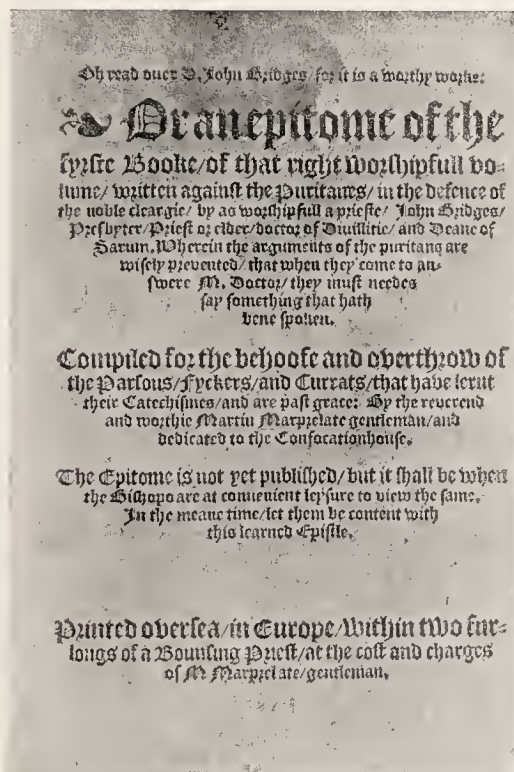 Oh read ouer D. John Bridges/ for it is a worthy worke:
Or an epitome of the
fyrste Booke/ of that right worshipfull vo-
lume/ written against the Puritanes/ in the defence of
the noble cleargie/ by as worshipfull a prieste/ John Bridges/
Presbyter/ Priest or elder/ doctor of Diuillitie/ and Deane of
Sarum. Wherein the arguments of the puritans are
wisely prevented/ that when they come to an-
swere M. Doctor/ they must needes
say something that hath
bene spoken.
Compiled for the behoofe and overthrow of
the Parsons/ Fyckers/ and Currats/ that have lernt
their Catechismes/ and are past grace: By the reverend
and worthie Martin Marprelate gentleman/ and
dedicated to the Confocationhouse.
The Epitome is not yet published/ but it shall be when
the Bishops are at conuenient leysure to view the same.
In the meane time/ let them be content with
this learned Epistle.
Printed oversea/ in Europe/ within two fur-
longs of a Bounsing Priest/ at the cost and charges
of M. Marprelate/ gentleman.